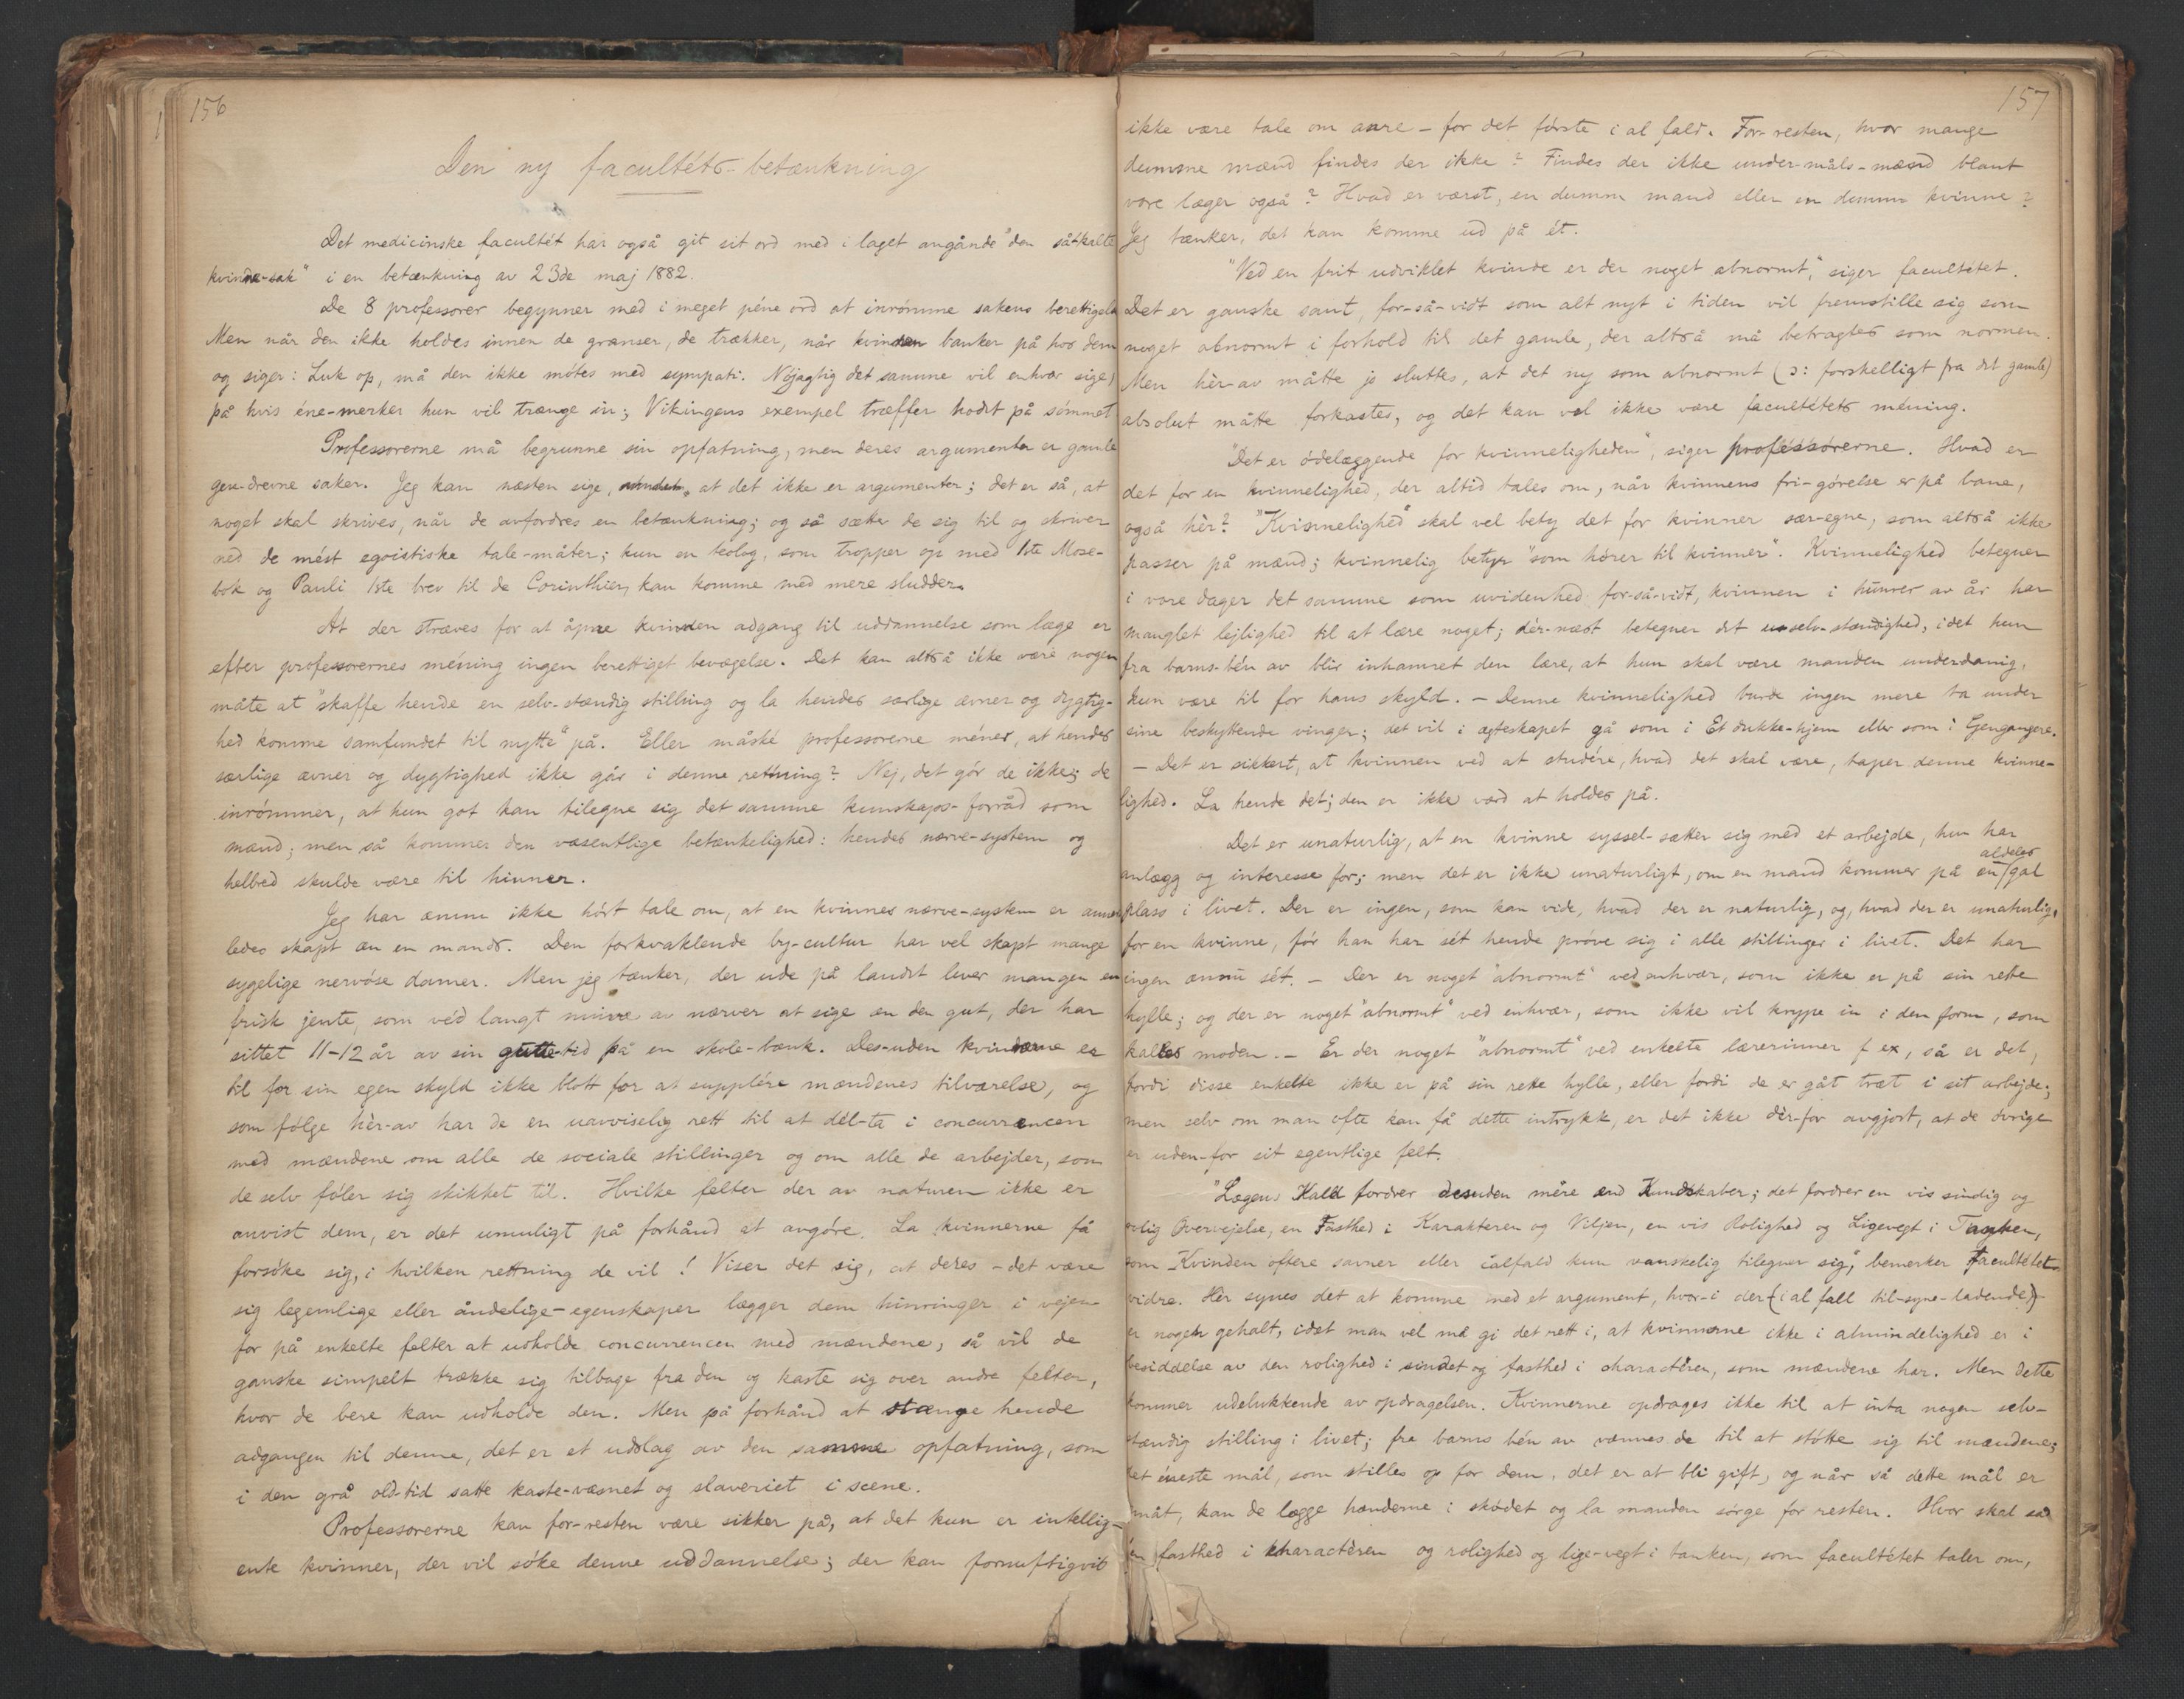 156
Den ny facultéts-betænkning
Det medicinske facultét har også git sit ord med i laget angånde "den såkalte
kvinne-sak" i en betænkning av 23de maj 1882.
De 8 professorer begynner med i meget péne ord at inrömme sakens berettigelse
Men når den ikke holdes innen de grænser, de trækker, når kvinnen banker på hos dem
og siger: Luk op, må den ikke mötes med sympati. Nöjagtig det samme vil enhver sige,
på hvis éne-merker hun vil trænge in; Vikingens exempel træffer hodet på sömmet
Professorerne må begrunne sin opfatning, men deres argumenter er gamle
gen-drevne saker. Jeg kan næsten sige, at det ikke er argumenter; det er så, at
noget skal skrives, når de avfordres en betænkning; og så sætter de sig til og skriver
ned de mést egoistiske tale-måter; kun en teolog, som tropper op med 1ste Mose-
bok og Pauli 1ste brev til de Corinthier, kan komme med mere sludder.
At der stræves for at åpne kvinnen adgang til uddannelse som læge er
efter professorernes méning ingen berettiget bevægelse. Det kan altså ikke være nogen
måte at "skaffe hende en selv-stændig stilling og la hendes særlige ævner og dygtig-
hed komme samfundet til nytte" på. Eller måské professorerne méner, at hendes
særlige ævner og dygtighed ikke går i denne retning? Nej, det gör de ikke; de
inrömmer, at hun got kan tilegne sig det samme kunskaps-forråd som
mænd; men så kommer den væsentlige betænkelighed: hendes nærve-system og
helbred skulde være til hinner.
Jeg har ænnu ikke hört tale om, at en kvinnes nærve-system er anner-
ledes skapt æn en mands. Den forkvaklende by-cultur har vel skapt mange
sygelige nervöse damer. Men jeg tænker, der ude på landet lever mangen en
frisk jente, som véd langt minre av nærver at sige æn den gut, der har
sittet 11-12 år av sin gutte-tid på en skole-bænk. Des-uden kvinnerne er
til for sin egen skyld ikke blott for at supplére mændenes tilværelse, og
som fölge hèr-av har de en uavviselig rett til at dél-ta i concurrencen
med mændene om alle de sociale stillinger og om alle de arbejder, som
de selv föler sig skikket til. Hvilke felter der av naturen ikke er
anvist dem, er det umuligt på forhånd at avgöre. La kvinnerne få
forsöke sig, i hvilken rettning de vil! Viser det sig, at deres - det være
sig legemlige eller åndelige - egenskaper lægger dem hinringer i vejen
for på enkelte felter at udholde concurrencen med mændene, så vil de
ganske simpelt trække sig tilbage fra den og kaste sig over andre felter,
hvor de bere kan udholde den. Men på forhånd at stænge hende
adgangen til denne, det er et udslag av den samme opfatning, som
i den grå old-tid satte kaste-væsnet og slaveriet i scene.
Professorerne kan for-resten være sikker på, at det kun er intellig-
ente kvinner, der vil söke denne uddannelse; der kan fornuftigvis
157
ikke være tale om anre - for det förste i al fald. For-resten, hvor mange
dumme mænd findes der ikke? Findes der ikke under-måls-mænd blant
vore læger også? Hvad er værst, en dumm mand eller en dumm kvinne?
Jeg tænker, det kan komme ud på ét.
"Ved en frit udviklet kvinde er der noget abnormt," siger facultétet.
Det er ganske sant, for-så-vidt som alt nyt i tiden vil fremstille sig som
noget abnormt i forhold til det gamle, der altså må betragtes som normen.
Men hèr-av måtte jo sluttes, at det ny som abnormt (ɔ: forskelligt fra det gamle)
absolut måtte forkastes, og det kan vel ikke være facultétets méning.
"Det er ödelæggende for kvinneligheden", siger professorerne. Hvad er
det for en kvinnelighed, der altid tales om, når kvinnens fri-görelse er på bane,
også hèr? "Kvinnelighed" skal vel bety det for kvinner sær-egne, som altså ikke
passer på mænd; kvinnelig betyr "som hörer til kvinner". Kvinnelighed betegner
i vore dager det samme som uvidenhed for-så-vidt, kvinnen i hunrer av år har
manglet lejlighed til at lære noget; dèr-næst betegner det uselv-stændighed, idet hun
fra barns-bén av blir inhamret den lære, at hun skal være manden underdanig,
kun være til for hans skyld. - Denne kvinnelighed burde ingen mere ta under
sine beskyttende vinger; det vil i ægteskapet gå som i Et dukke-hjem eller som i Gengangere.
- Det er sikkert, at kvinnen ved at studére, hvad det skal være, taper denne kvinne-
lighed. La hende det; den er ikke værd at holdes på.
Det er unaturlig, at en kvinne syssel-sætter sig med et arbejde, hun har
anlægg og interesse for; men det er ikke unaturligt, om en mand kommer på en aldeles gal
plass i livet. Der er ingen, som kan vide, hvad der er naturlig, og, hvad der er unaturlig,
for en kvinne, för han har sét hende pröve sig i alle stillinger i livet. Det har
ingen ænnu sét. - Der er noget "abnormt" ved enhvær, som ikke er på sin rette
hylle; og der er noget "abnormt" ved enhvær, som ikke vil krype in i den form, som
kalles moden. - Er der noget "abnormt" ved enkelte lærerinner f ex, så er det,
fordi disse enkelte ikke er på sin rette hylle, eller fordi de er gåt træt i sit arbejde;
men selv om man ofte kan få dette intrykk, er det ikke dèr-for avgjort, at de övrige
er uden-for sit egentlige felt.
"Lægens Kald fordrer desuden mere end Kundskaber; det fordrer en vis sindig og
rolig Overvejelse, en Fasthed i Karakteren og Viljen, en vis Rolighed og Ligevegt i Tanken,
som Kvinden oftere savner eller ialfald kun vanskelig tilegner sig", bemerker facultétet
vidre. Hèr synes det at komme med et argument, hvor-i der (i al fall til-syne-ladende)
er nogen gehalt, idet man vel må gi det rett i, at kvinnerne ikke i almindelighed er i
besiddelse av den rolighed i sindet og fasthed i charactéren, som mændene har. Men dette
kommer udelukkende av opdragelsen. Kvinnerne opdrages ikke til at inta nogen selv-
stændig stilling i livet; fra barns bén av vænnes de til at stötte sig til mændene;
det éneste mål, som stilles op for dem, det er at bli gift, og når så dette mål er
nåt, kan de lægge hænderne i sködet og la manden sörge for resten. Hvor skal så
den fasthed i charactéren og rolighed og lige-vegt i tanken, som facultétet taler om,